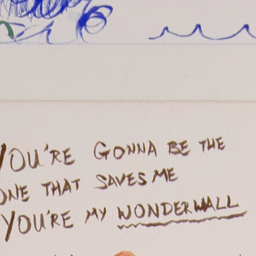 YOU'RE GONNA BE THE
ONE THAT SAVES ME
YOU'RE MY WONDERWALL